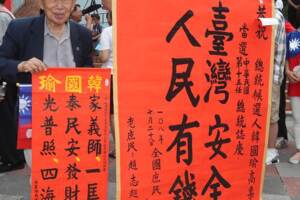 恭祝
總統候選人韓國瑜高
當選中華民國第十五任總統誌慶
臺灣安全
人民有錢
一〇八年
全國庶民
老庶民
韓家義師、一馬
國泰民安、發財
瑜光普照、四海